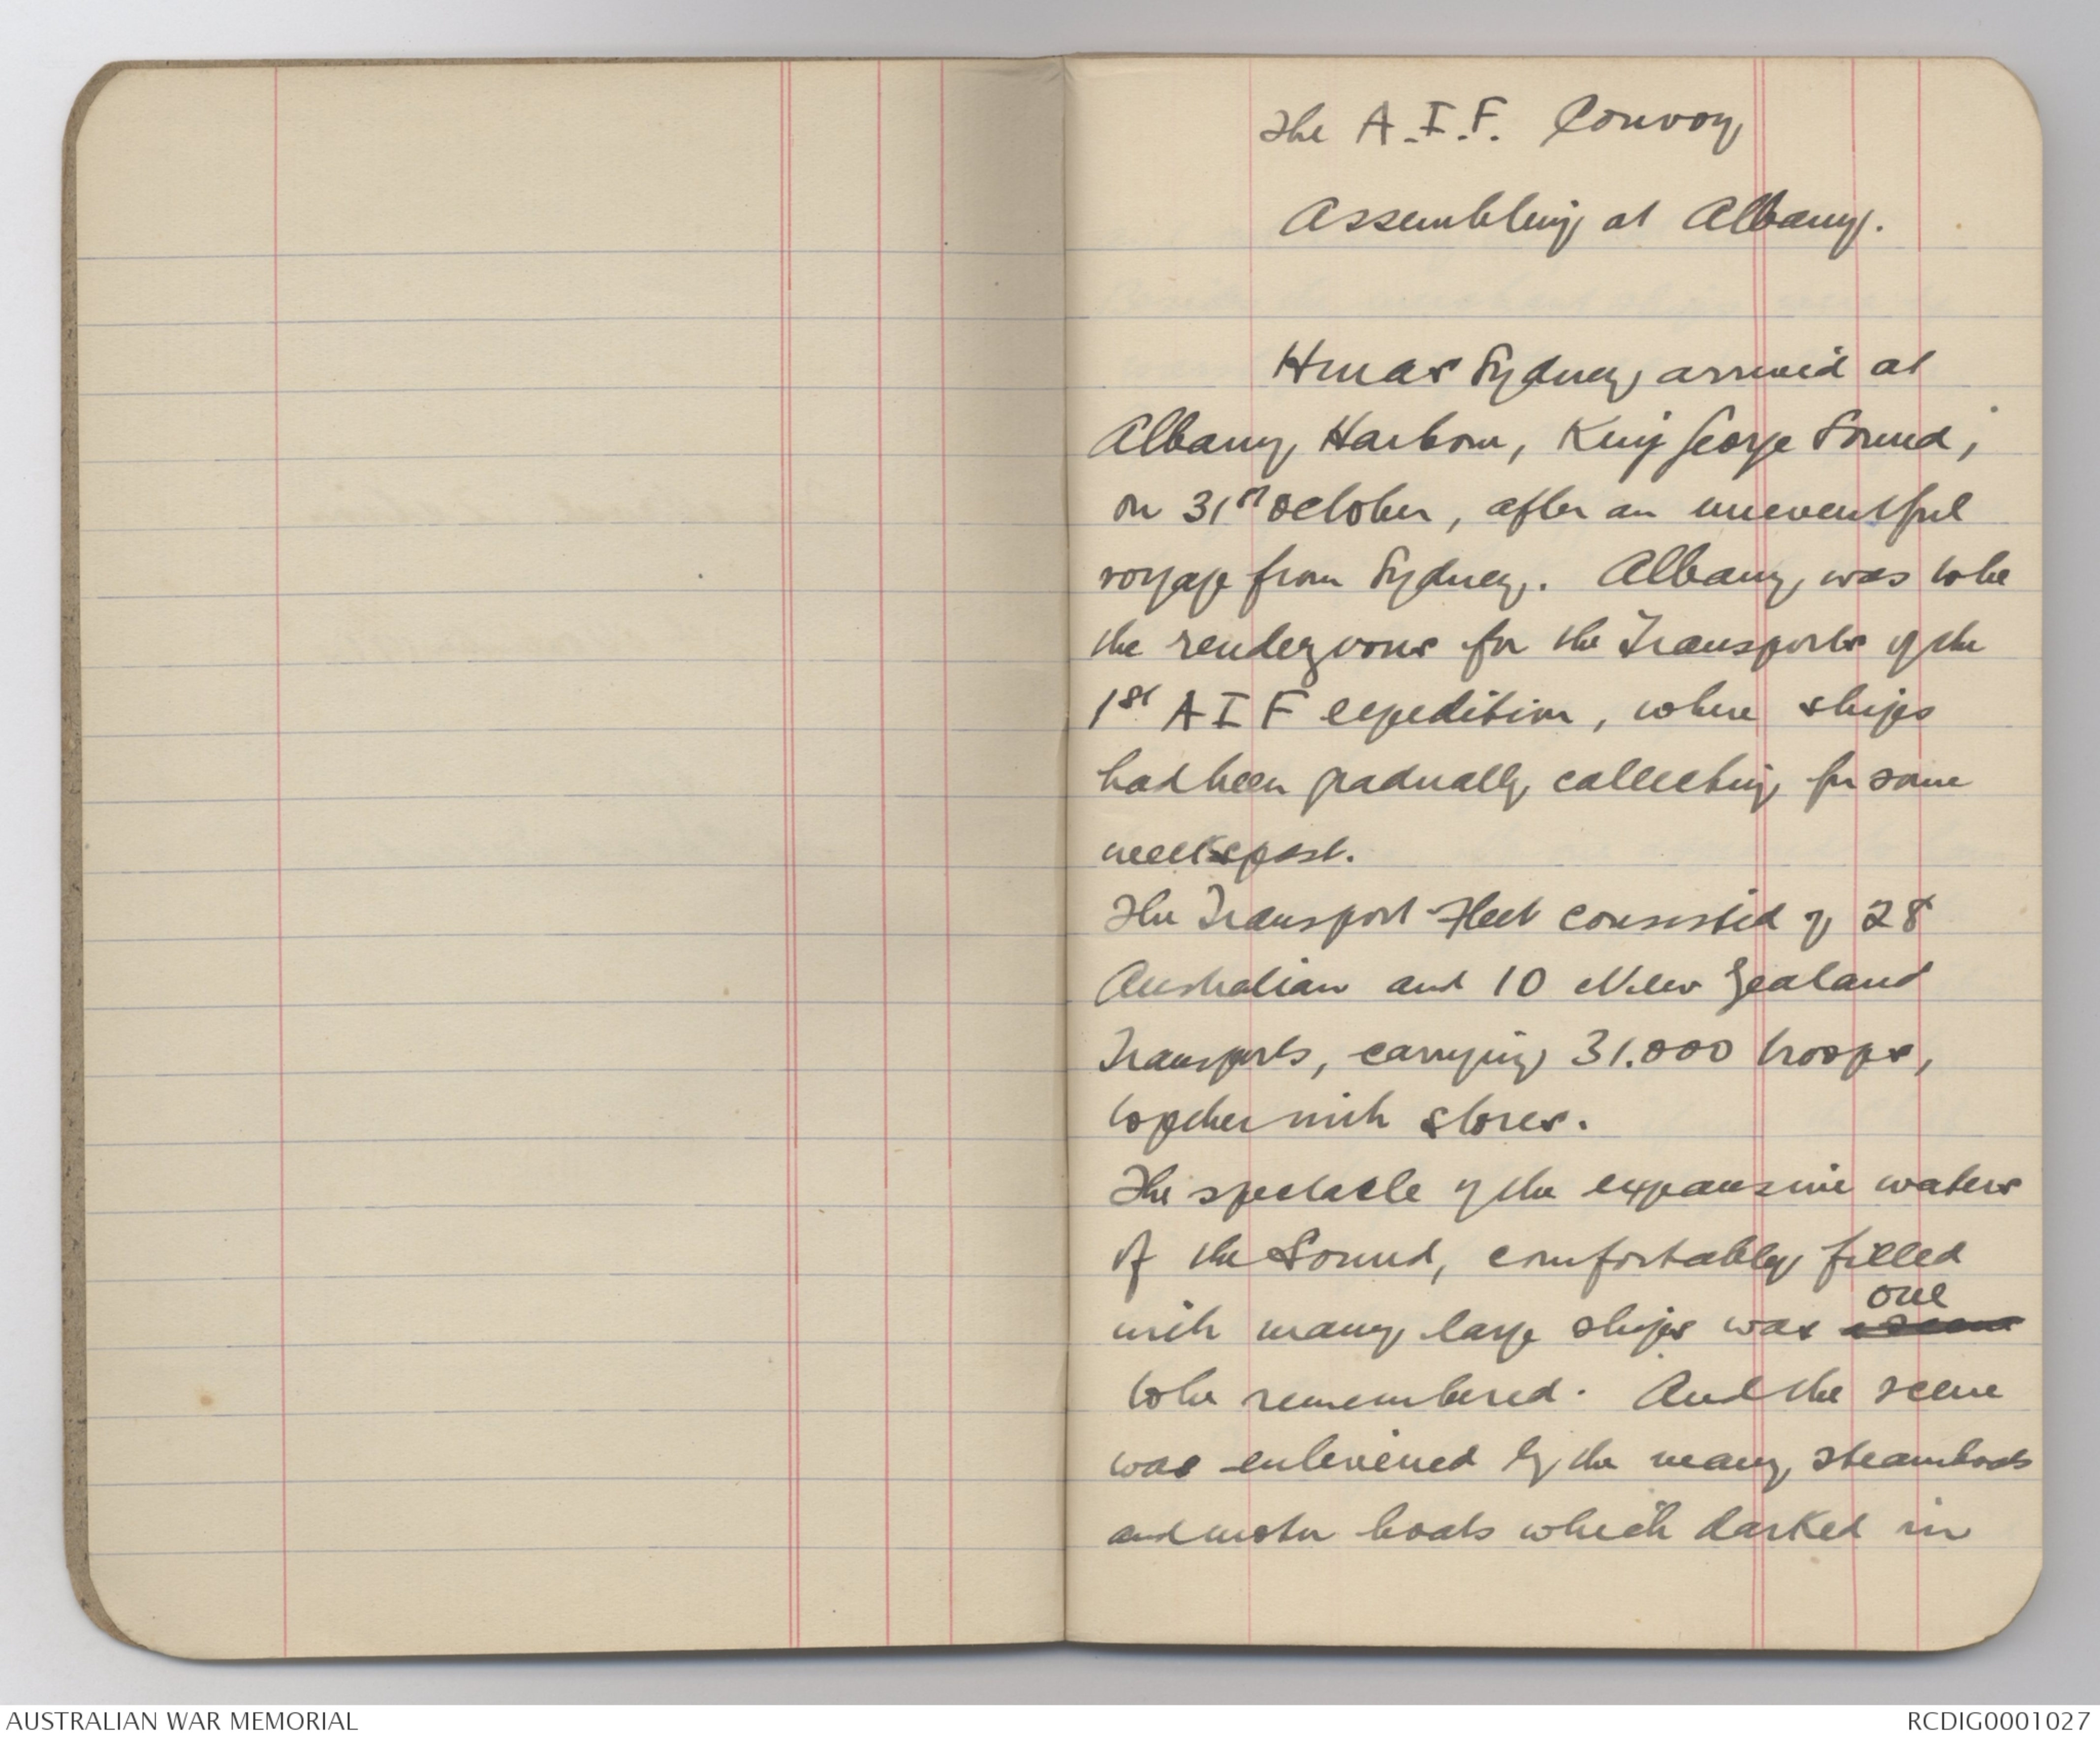 The A.I.F. Convoy
Assembling at Albany.
Hmas Sydney arrived at
Albany Harbour, King George Sound,
on 31st October, after an uneventful
voyage from Sydney. Albany was to be
the rendezvous for the Transports of the
1st A I F expedition, where ships
had been gradually collecting for some
weeks past.
The Transport Fleet consisted of 28
Australian and 10 New Zealand
Transports, carrying 31.000 troops,
together with stores.
The spectacle of the expansive waters
of the Sound, comfortably filled
with many large ships was one
to be remembered. And the scene
was enlivened by the many steamboats
and motor boats which darked in
AUSTRALIAN WAR MEMORIAL
RCDIG0001027